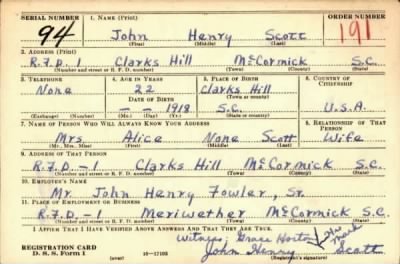 SERIAL NUMBER 1. NAME (Print) ORDER NUMBER
94 John Henry Scott 191
(First) (Middle) (Last)
2. ADDRESS (Print)
R.F.D. 1 Clarks Hill McCormick S.C.
(Number and street or R. F. D. number) (Town) (County) (State)
3. TELEPHONE 4. AGE IN YEARS 5. PLACE OF BIRTH 6. COUNTRY OF CITIZENSHIP
None 22 Clarks Hill
(Town or county)
DATE OF BIRTH
- - 1918 S.C. U.S.A.
(Exchange) (Number) (Mo.) (Day) (Yr.) (State or country)
7. NAME OF PERSON WHO WILL ALWAYS KNOW YOUR ADDRESS 8. RELATIONSHIP OF THAT PERSON
Mrs. Alice None Scott Wife
(Mr., Mrs., Miss) (First) (Middle) (Last)
9. ADDRESS OF THAT PERSON
R.F.D.-1 Clarks Hill McCormick S.C.
(Number and street or R. F. D. number) (Town) (County) (State)
10. EMPLOYER'S NAME
Mr. John Henry Fowler, Sr.
11. PLACE OF EMPLOYMENT OR BUSINESS
R.F.D.-1 Meriwether McCormick S.C.
(Number and street or R. F. D. number) (Town) (County) (State)
I AFFIRM THAT I HAVE VERIFIED ABOVE ANSWERS AND THAT THEY ARE TRUE.
Witness, Grace Horton His Mark
REGISTRATION CARD John Henry Scott
D. S. S. Form 1 16-17105
(over) (Registrant's signature)